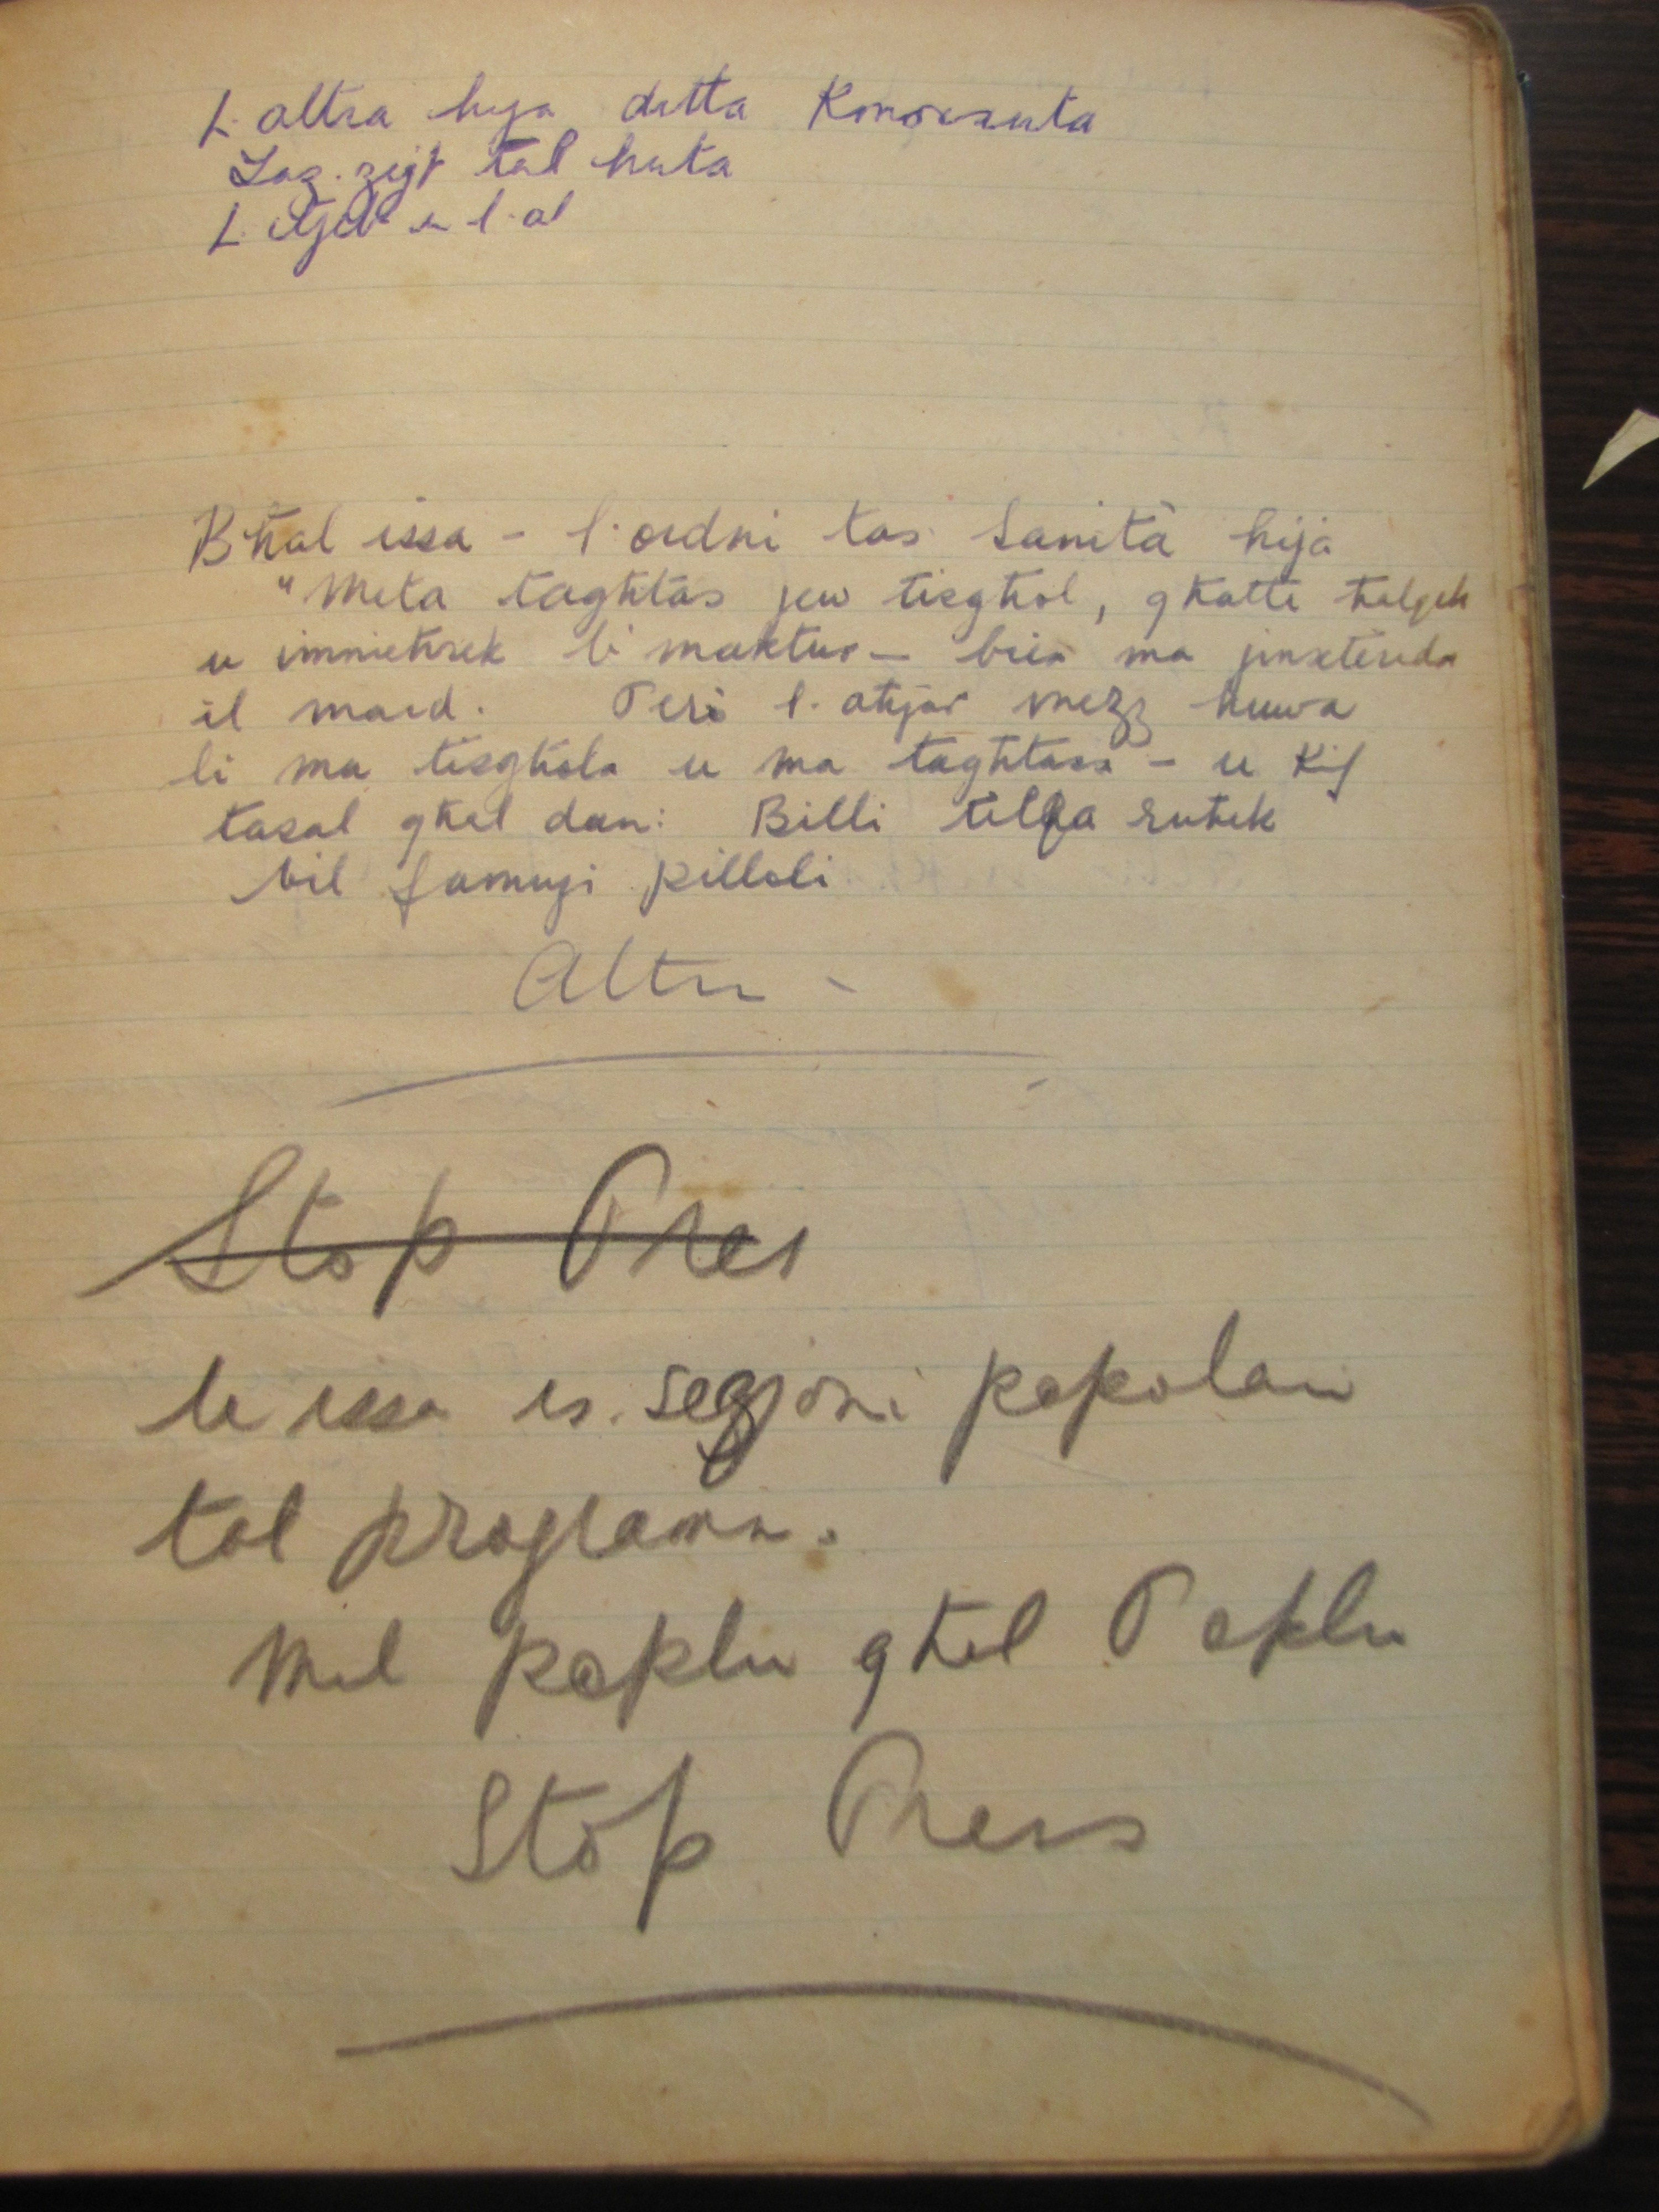 L. altra hija ditta Konoxxuta
Zaz. zejt tal huta
L. u l. al
Bħal issa - l. ordni tas Sanità hija
"Meta tagħtas jew tisgħol, għatti ħalqek
u imnieħrek b'maktur - biex ma jinxteridx
il mard. Peró l. aħjar mezz huwa
li ma tisgħolx u ma tagħtasx - u Kif
tasal għal dan: Billi tilqa ruħek
bil famużi pilloli
Altru -
Stop Pres
u issa is. sezjoni popolari
tal programm.
Mil poplu għal Poplu
Stop Press